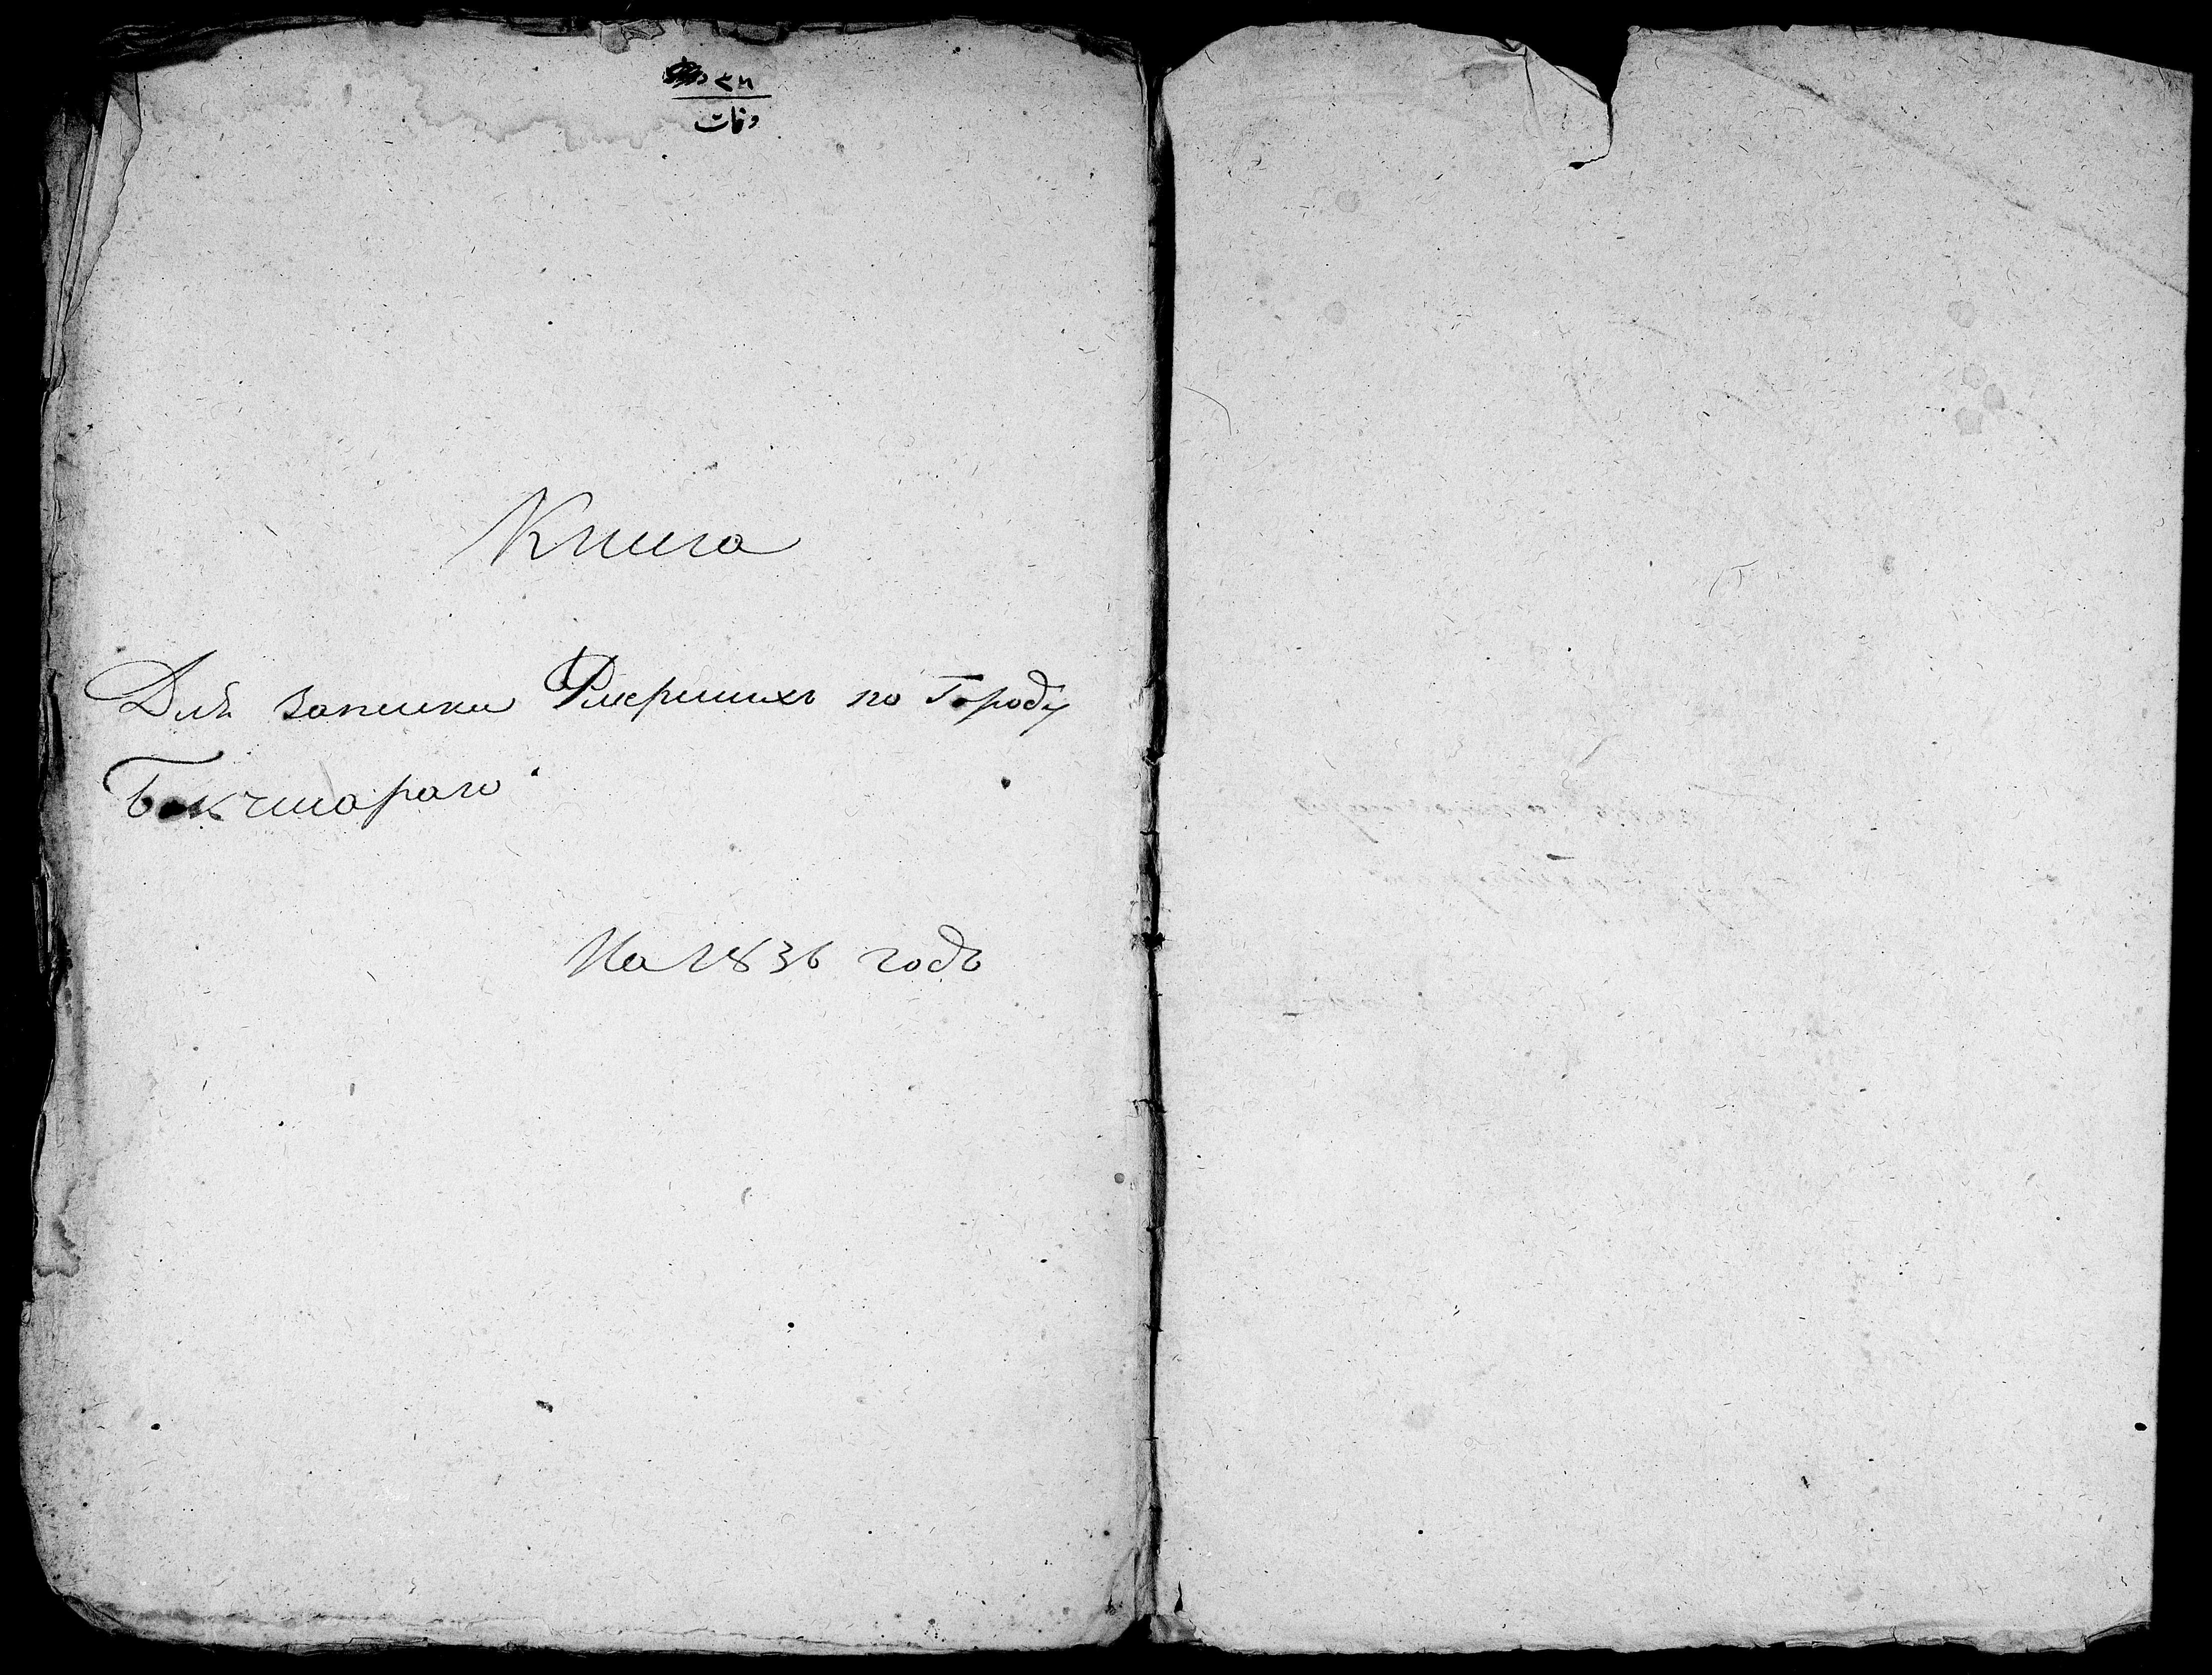 وفات
Книга
Для записки Умершихъ по городу
Бакчисараю
На 1836 годъ